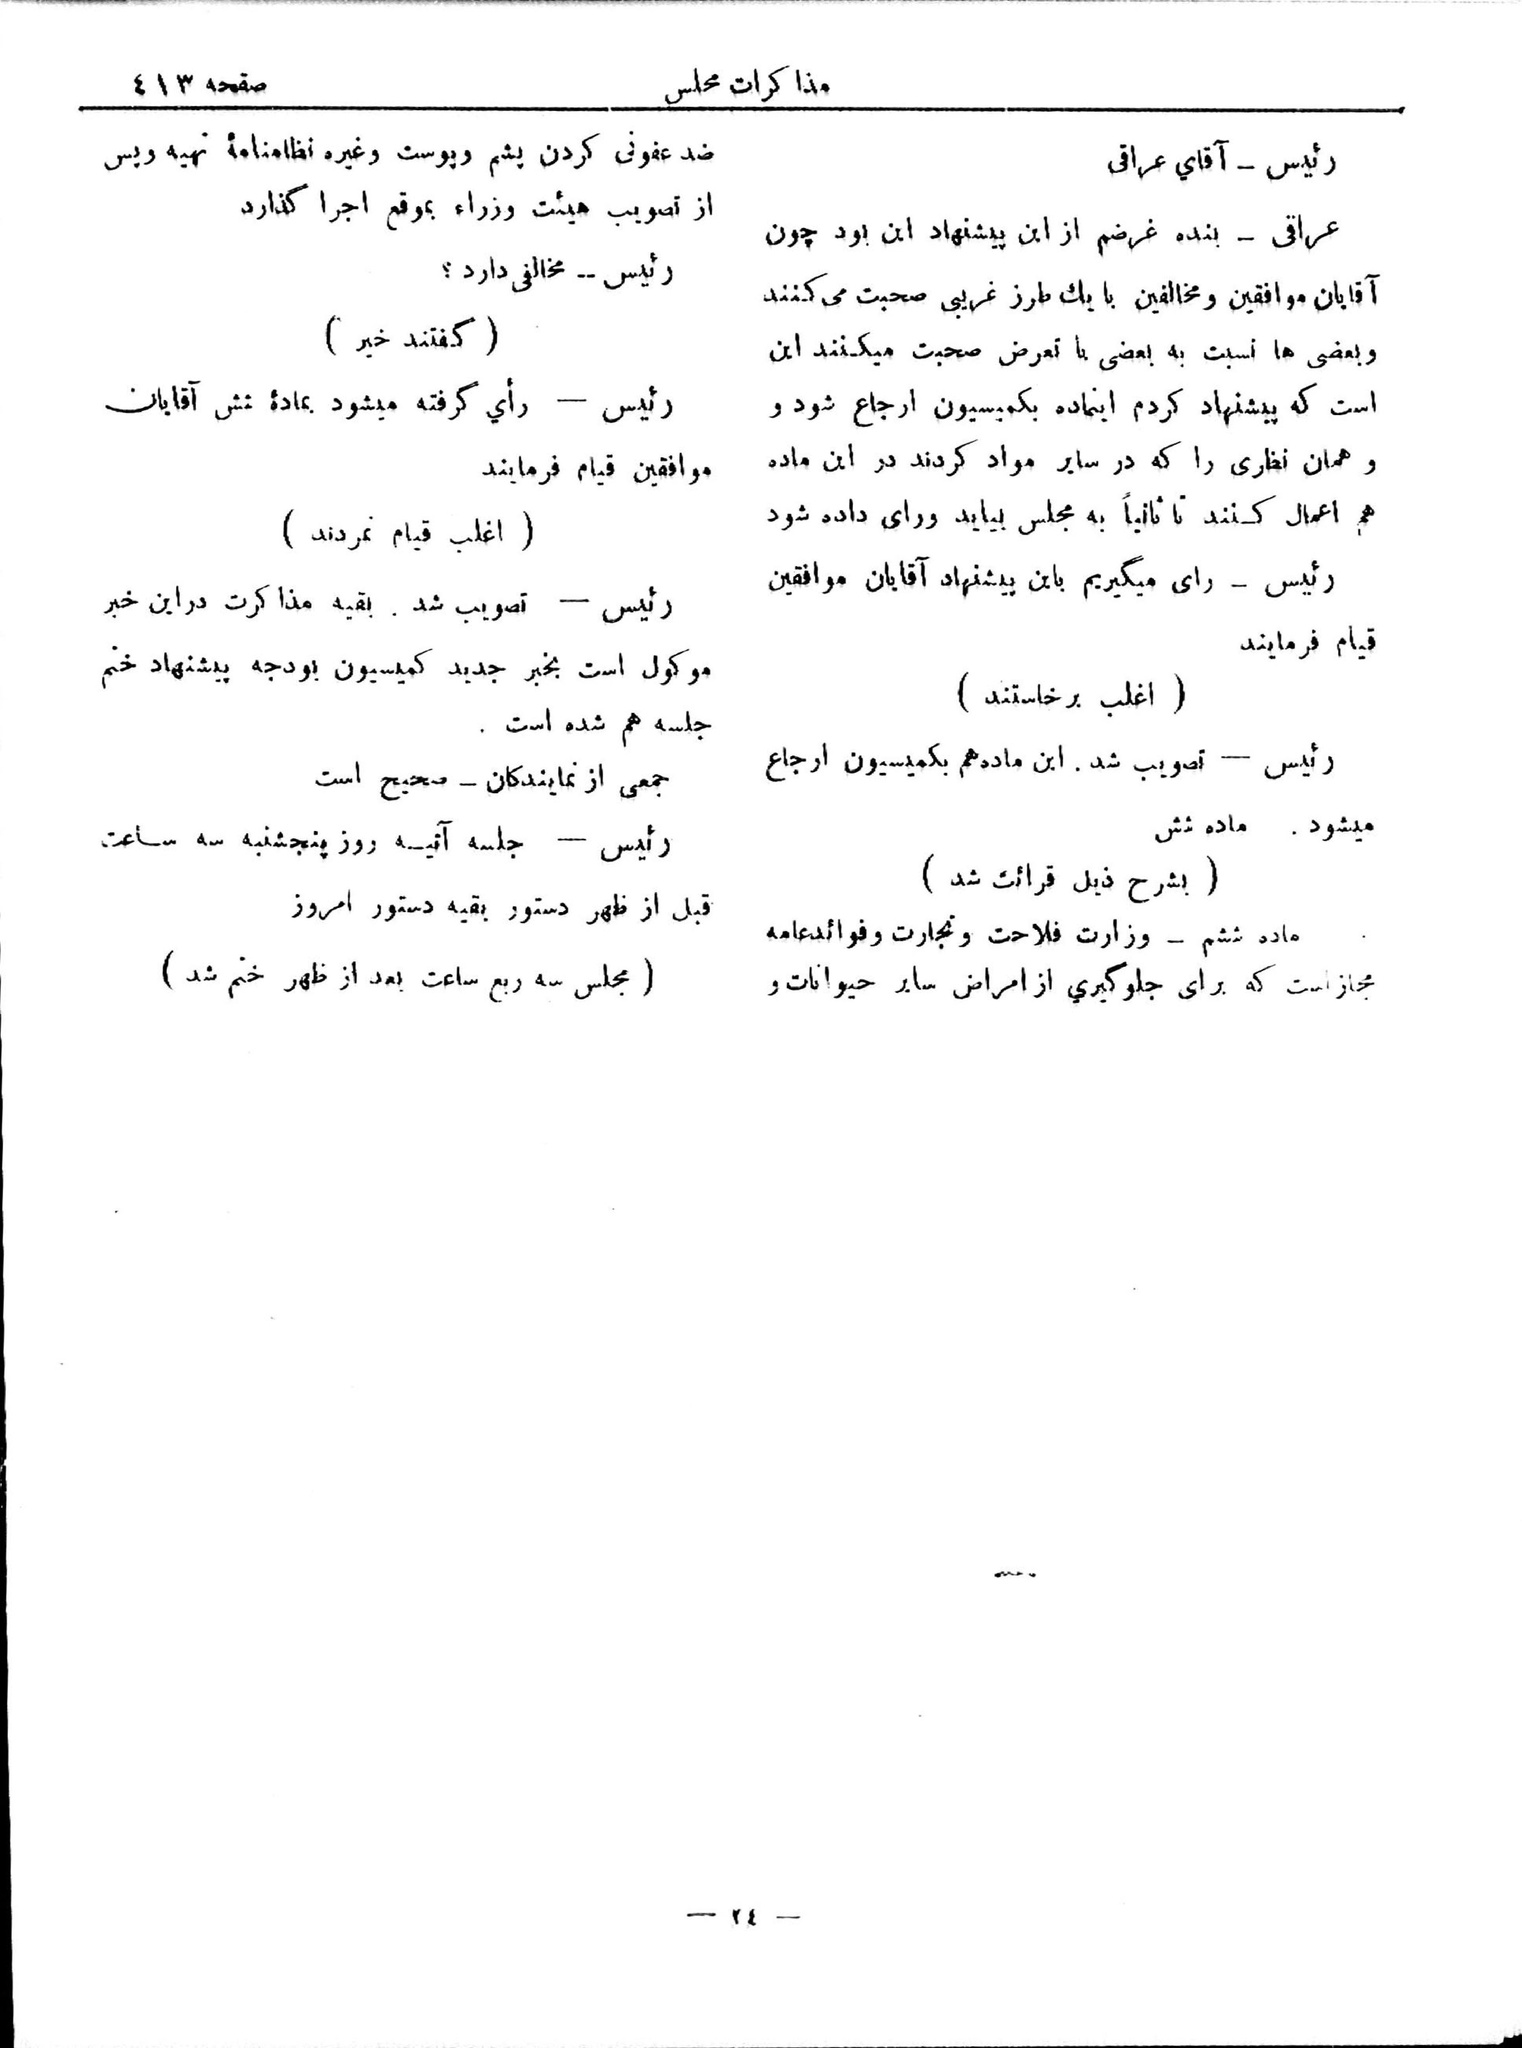 مذاکرات مجلس
صفحه ٤١٣
رئیس ــ آقاي عراقی
عراقی ــ بنده غرضم از این پیشنهاد این بود چون
آقایان موافقین و مخالفین با یك طرز غریبی صحبت می‌کنند
و بعضی ها نسبت به بعضی با تعرض صحبت میکنند این
است که پیشنهاد کردم اینماده بکمیسیون ارجاع شود و
و همان نظاری را که در سایر مواد کردند در این ماده
هم اعمال کنند تا ثانیاً به مجلس بیاید ورای داده شود
رئیس ــ رای میگیریم باین پیشنهاد آقایان موافقین
قیام فرمایند
( اغلب برخاستند )
رئیس — تصویب شد . این ماده‌هم بکمیسیون ارجاع
میشود . ماده شش
( بشرح ذیل قرائت شد )
ماده ششم ــ وزارت فلاحت و تجارت و فوائدعامه
مجازاست که برای جلوگیري از امراض سایر حیوانات و
ضد عفونی کردن پشم و پوست و غیره نظامنامهٔ تهیه و پس
از تصویب هیئت وزراء بموقع اجرا گذارد
رئیس ــ مخالفی دارد ؟
( گفتند خیر )
رئیس — رأي گرفته میشود بمادهٔ شش آقایان
موافقین قیام فرمایند
( اغلب قیام نمردند )
رئیس — تصویب شد . بقیه مذاکرت دراین خبر
موکول است بخبر جدید کمیسیون بودجه پیشنهاد ختم
جلسه هم شده است .
جمعی از نمایندکان ــ صحیح است
رئیس — جلسه آتیه روز پنجشنبه سه ساعت
قبل از ظهر دستور بقیه دستور امروز
( مجلس سه ربع ساعت بعد از ظهر ختم شد )
— ٢٤ —